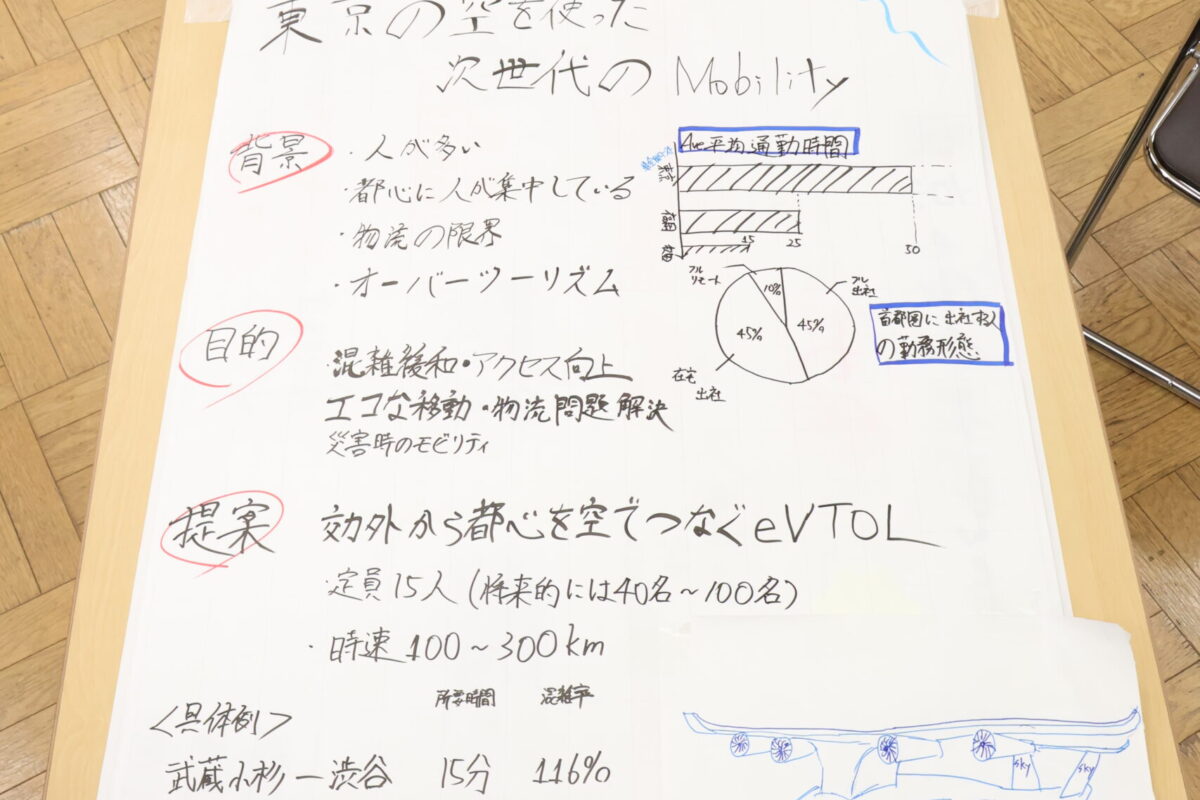 東京の空を使った
次世代の Mobility
背景
・人が多い
・都心に人が集中している
・物流の限界
・オーバーツーリズム
Ave平均通勤時間
東京
15
25
50
フル
リモート
10%
フル
出社
45%
45%
在宅
出社
首都圏に出社する人
の勤務形態
目的
・混雑緩和・アクセス向上
エコな移動・物流問題解決
災害時のモビリティ
提案
効外から都心を空でつなぐeVTOL
・定員15人(将来的には40名～100名)
・時速100～300km
所要時間 混雑率
<具体例>
武蔵小杉ー渋谷 15分 116%
sky
sky